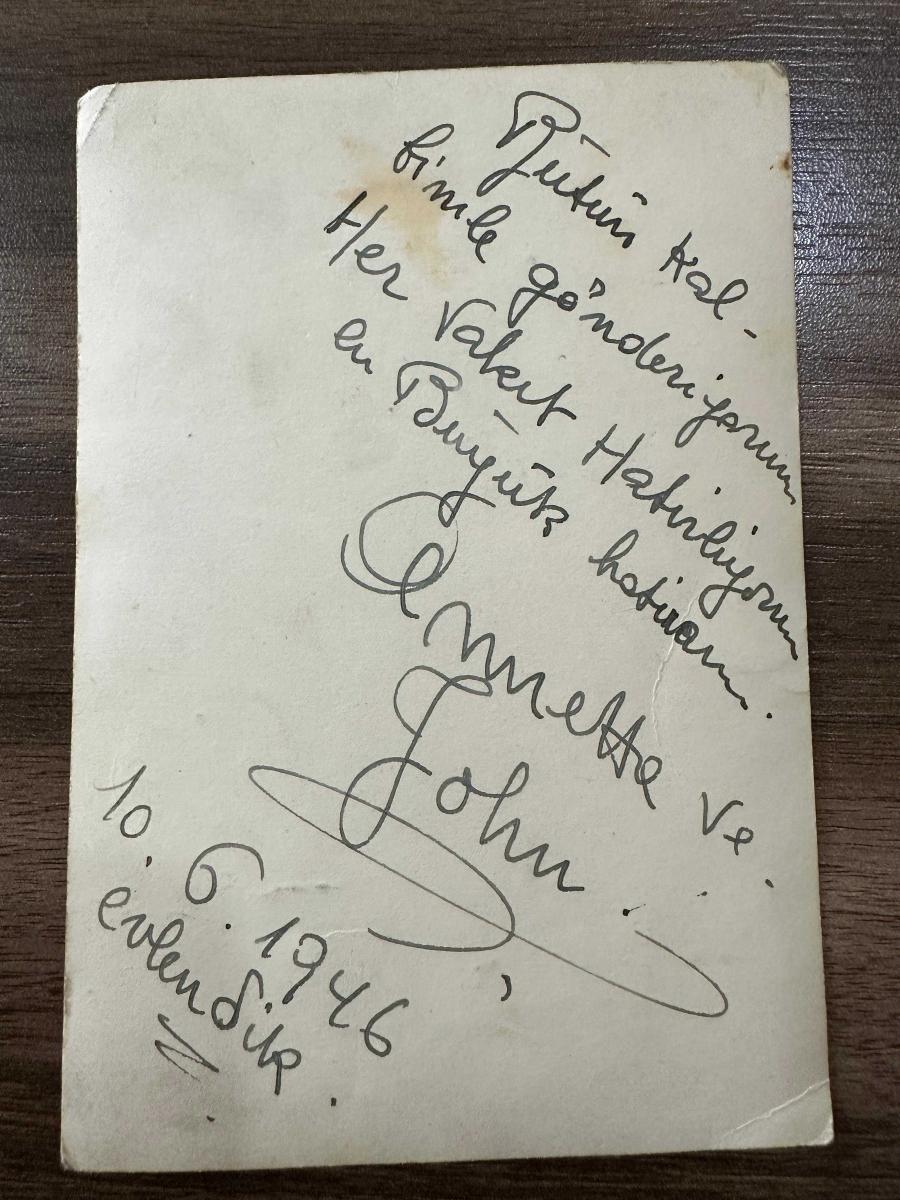 Bütün kal-
bimle gönderiyorum
Her vakıt Hatırlıyorum
en Büyük hatıram.
Annette ve
John.
10.6.1946
evlendik.